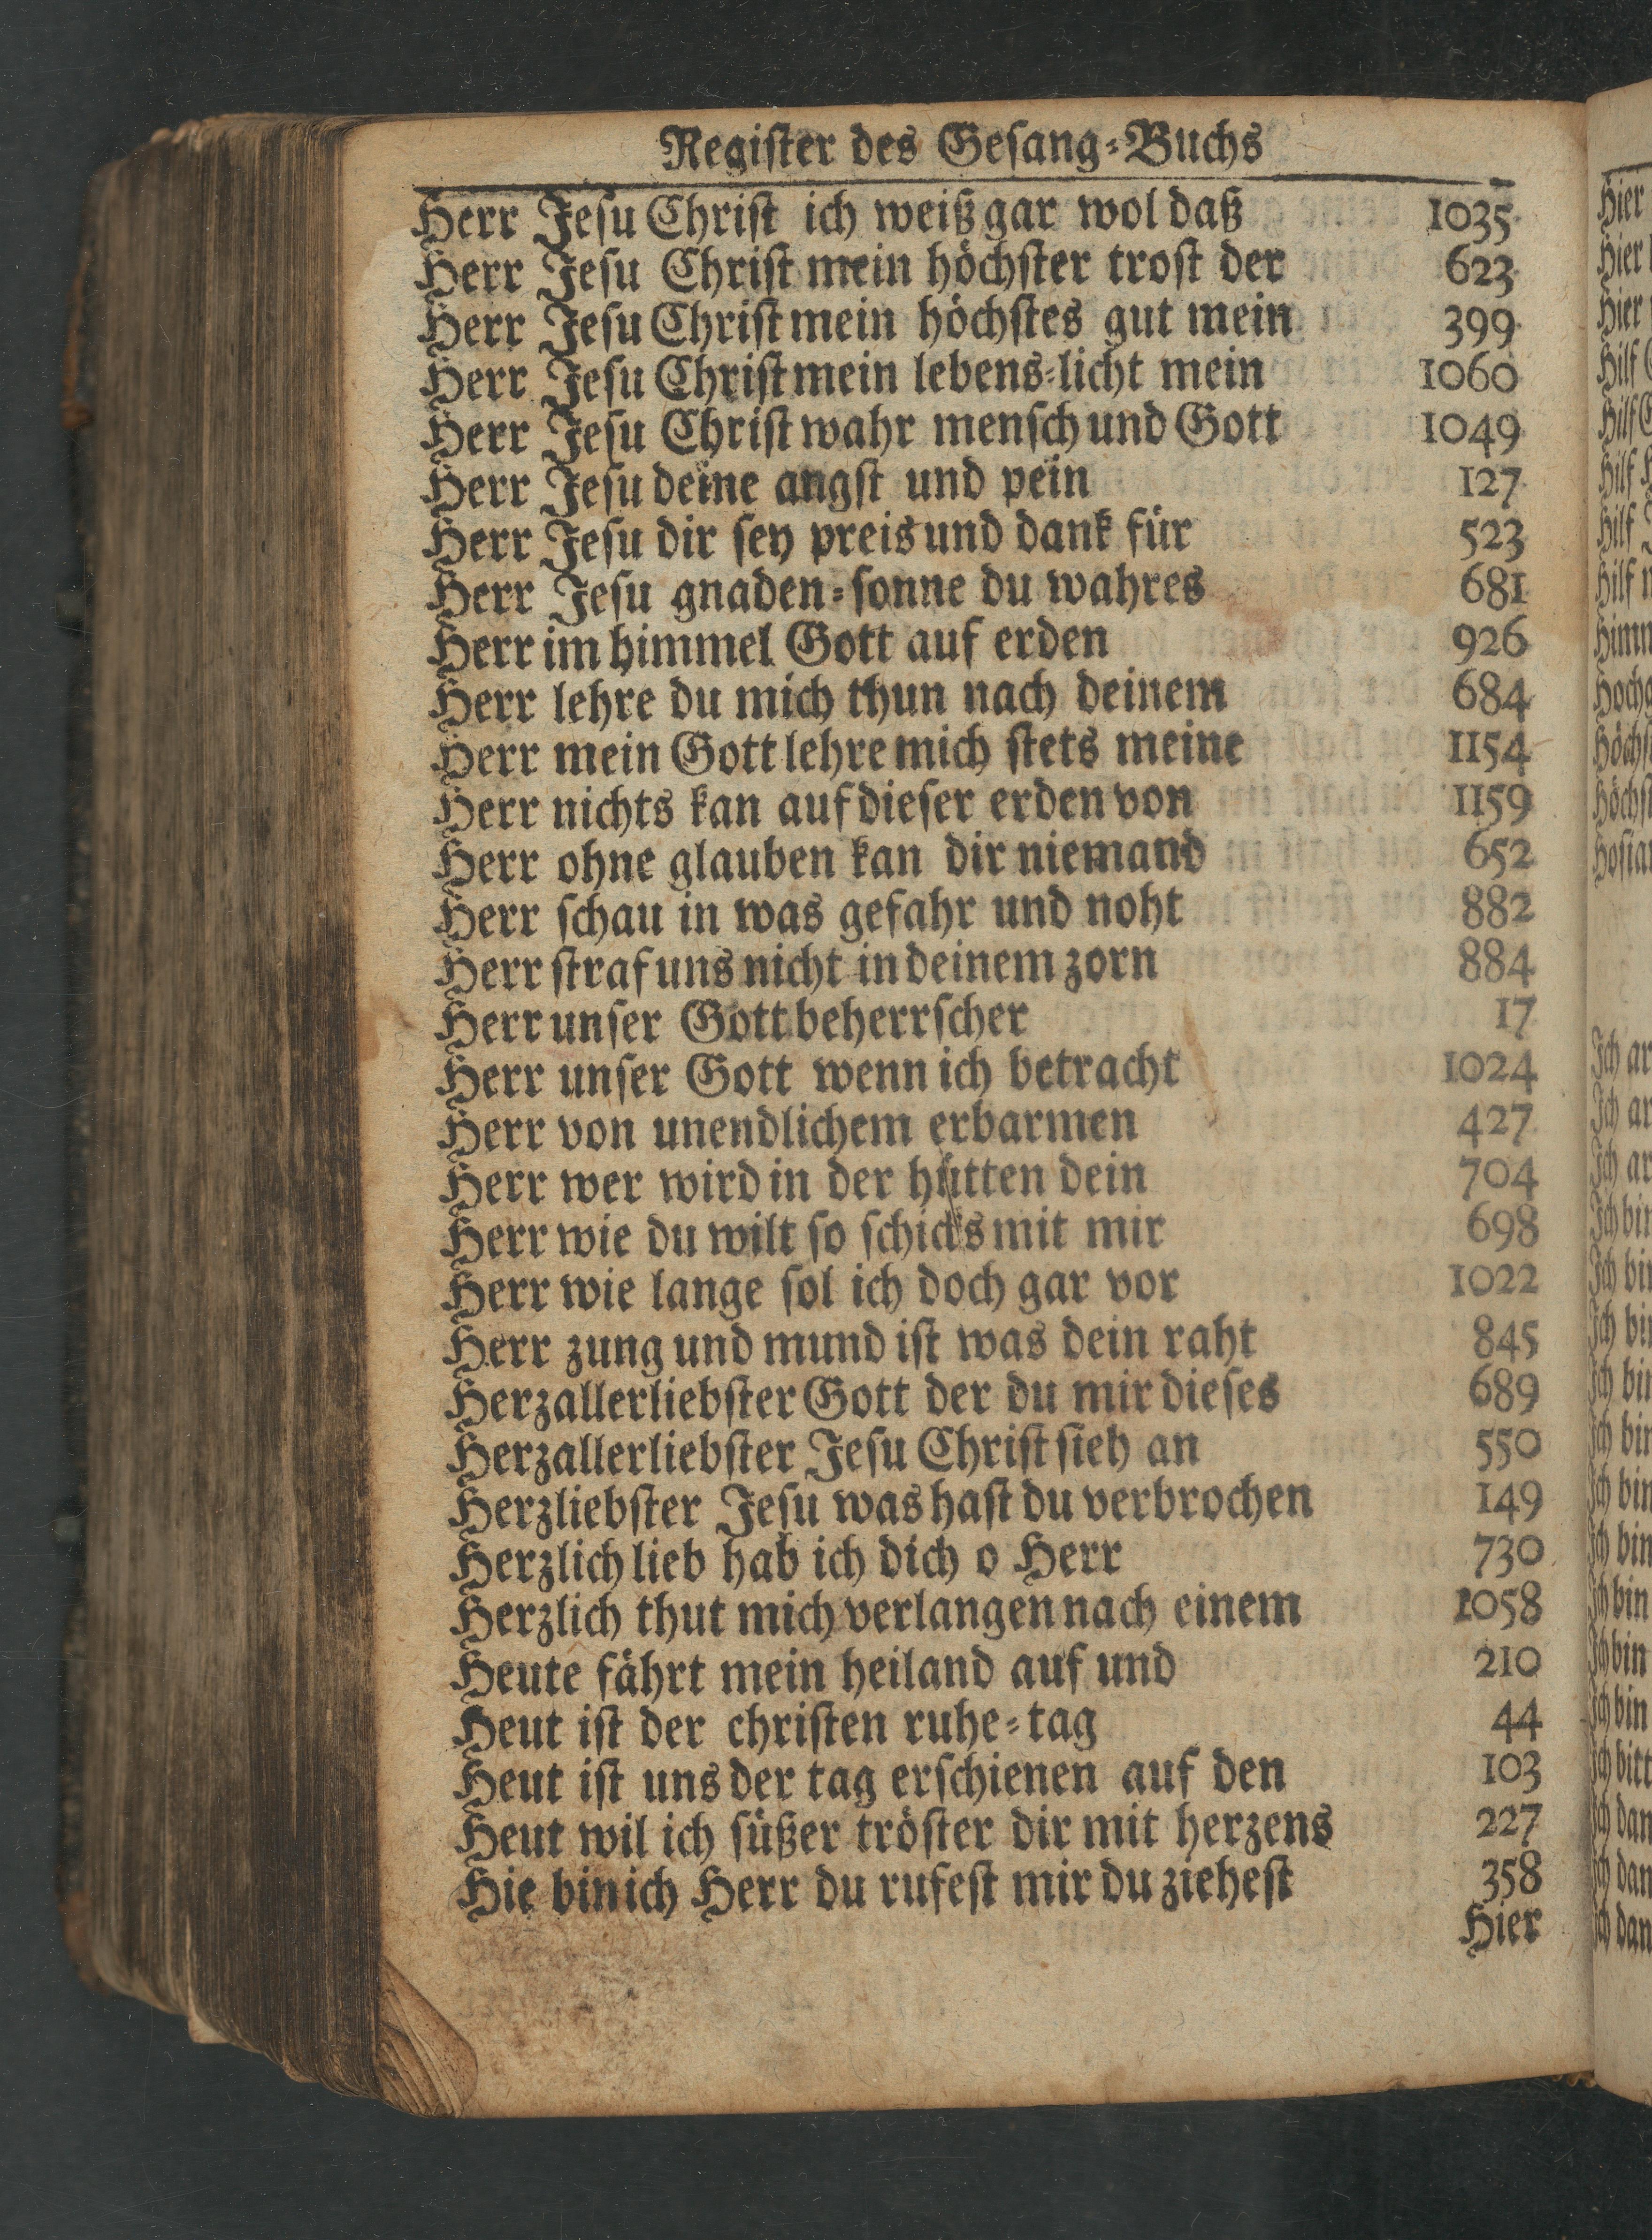 Register des Gesang-Buchs
Herr Jesu Christ ich weiß gar wol daß 1035
Herr Jesu Christ mein höchster trost der 623
Herr Jesu Christ mein höchstes gut mein 399
Herr Jesu Christ mein lebens-licht mein 1060
Herr Jesu Christ wahr mensch und Gott 1049
Herr Jesu deine angst und pein 127
Herr Jesu dir sey preis und dank für 523
Herr Jesu gnaden-sonne du wahres 681
Herr im himmel Gott auf erden 926
Herr lehre du mich thun nach deinem 684
Herr mein Gott lehre mich stets meine 1154
Herr nichts kan auf dieser erden von 1159
Herr ohne glauben kan dir niemand 652
Herr schau in was gefahr und noht 882
Herr straf uns nicht in deinem zorn 884
Herr unser Gott beherrscher 17
Herr unser Gott wenn ich betracht 1024
Herr von unendlichem erbarmen 427
Herr wer wird in der hütten dein 704
Herr wie du wilt so schicks mit mir 698
Herr wie lange sol ich doch gar vor 1022
Herr zung und mund ist was dein raht 845
Herzallerliebster Gott der du mir dieses 689
Herzallerliebster Jesu Christ sieh an 550
Herzliebster Jesu was hast du verbrochen 149
Herzlich lieb hab ich dich o Herr 730
Herzlich thut mich verlangen nach einem 1058
Heute fährt mein heiland auf und 210
Heut ist der christen ruhe-tag 44
Heut ist uns der tag erschienen auf den 103
Heut wil ich süßer tröster dir mit herzens 227
Hie bin ich Herr du rufest mir du ziehest 358
Hier
Hier
Hier
Hier
Hilf
Hilf
Hilf
Hilf
Hilf
Ich
Ich
Ich
Ich
Ich
Ich
Ich
Ich
Ich bin
Ich bin
Ich bin
Ich bin
Ich bin
Ich
Ich
Ich
Ich